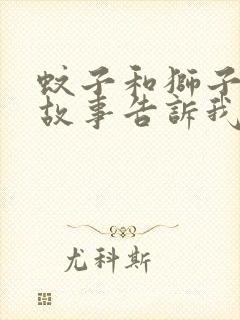 蚊子和獅子
故事告訴我
尤科斯